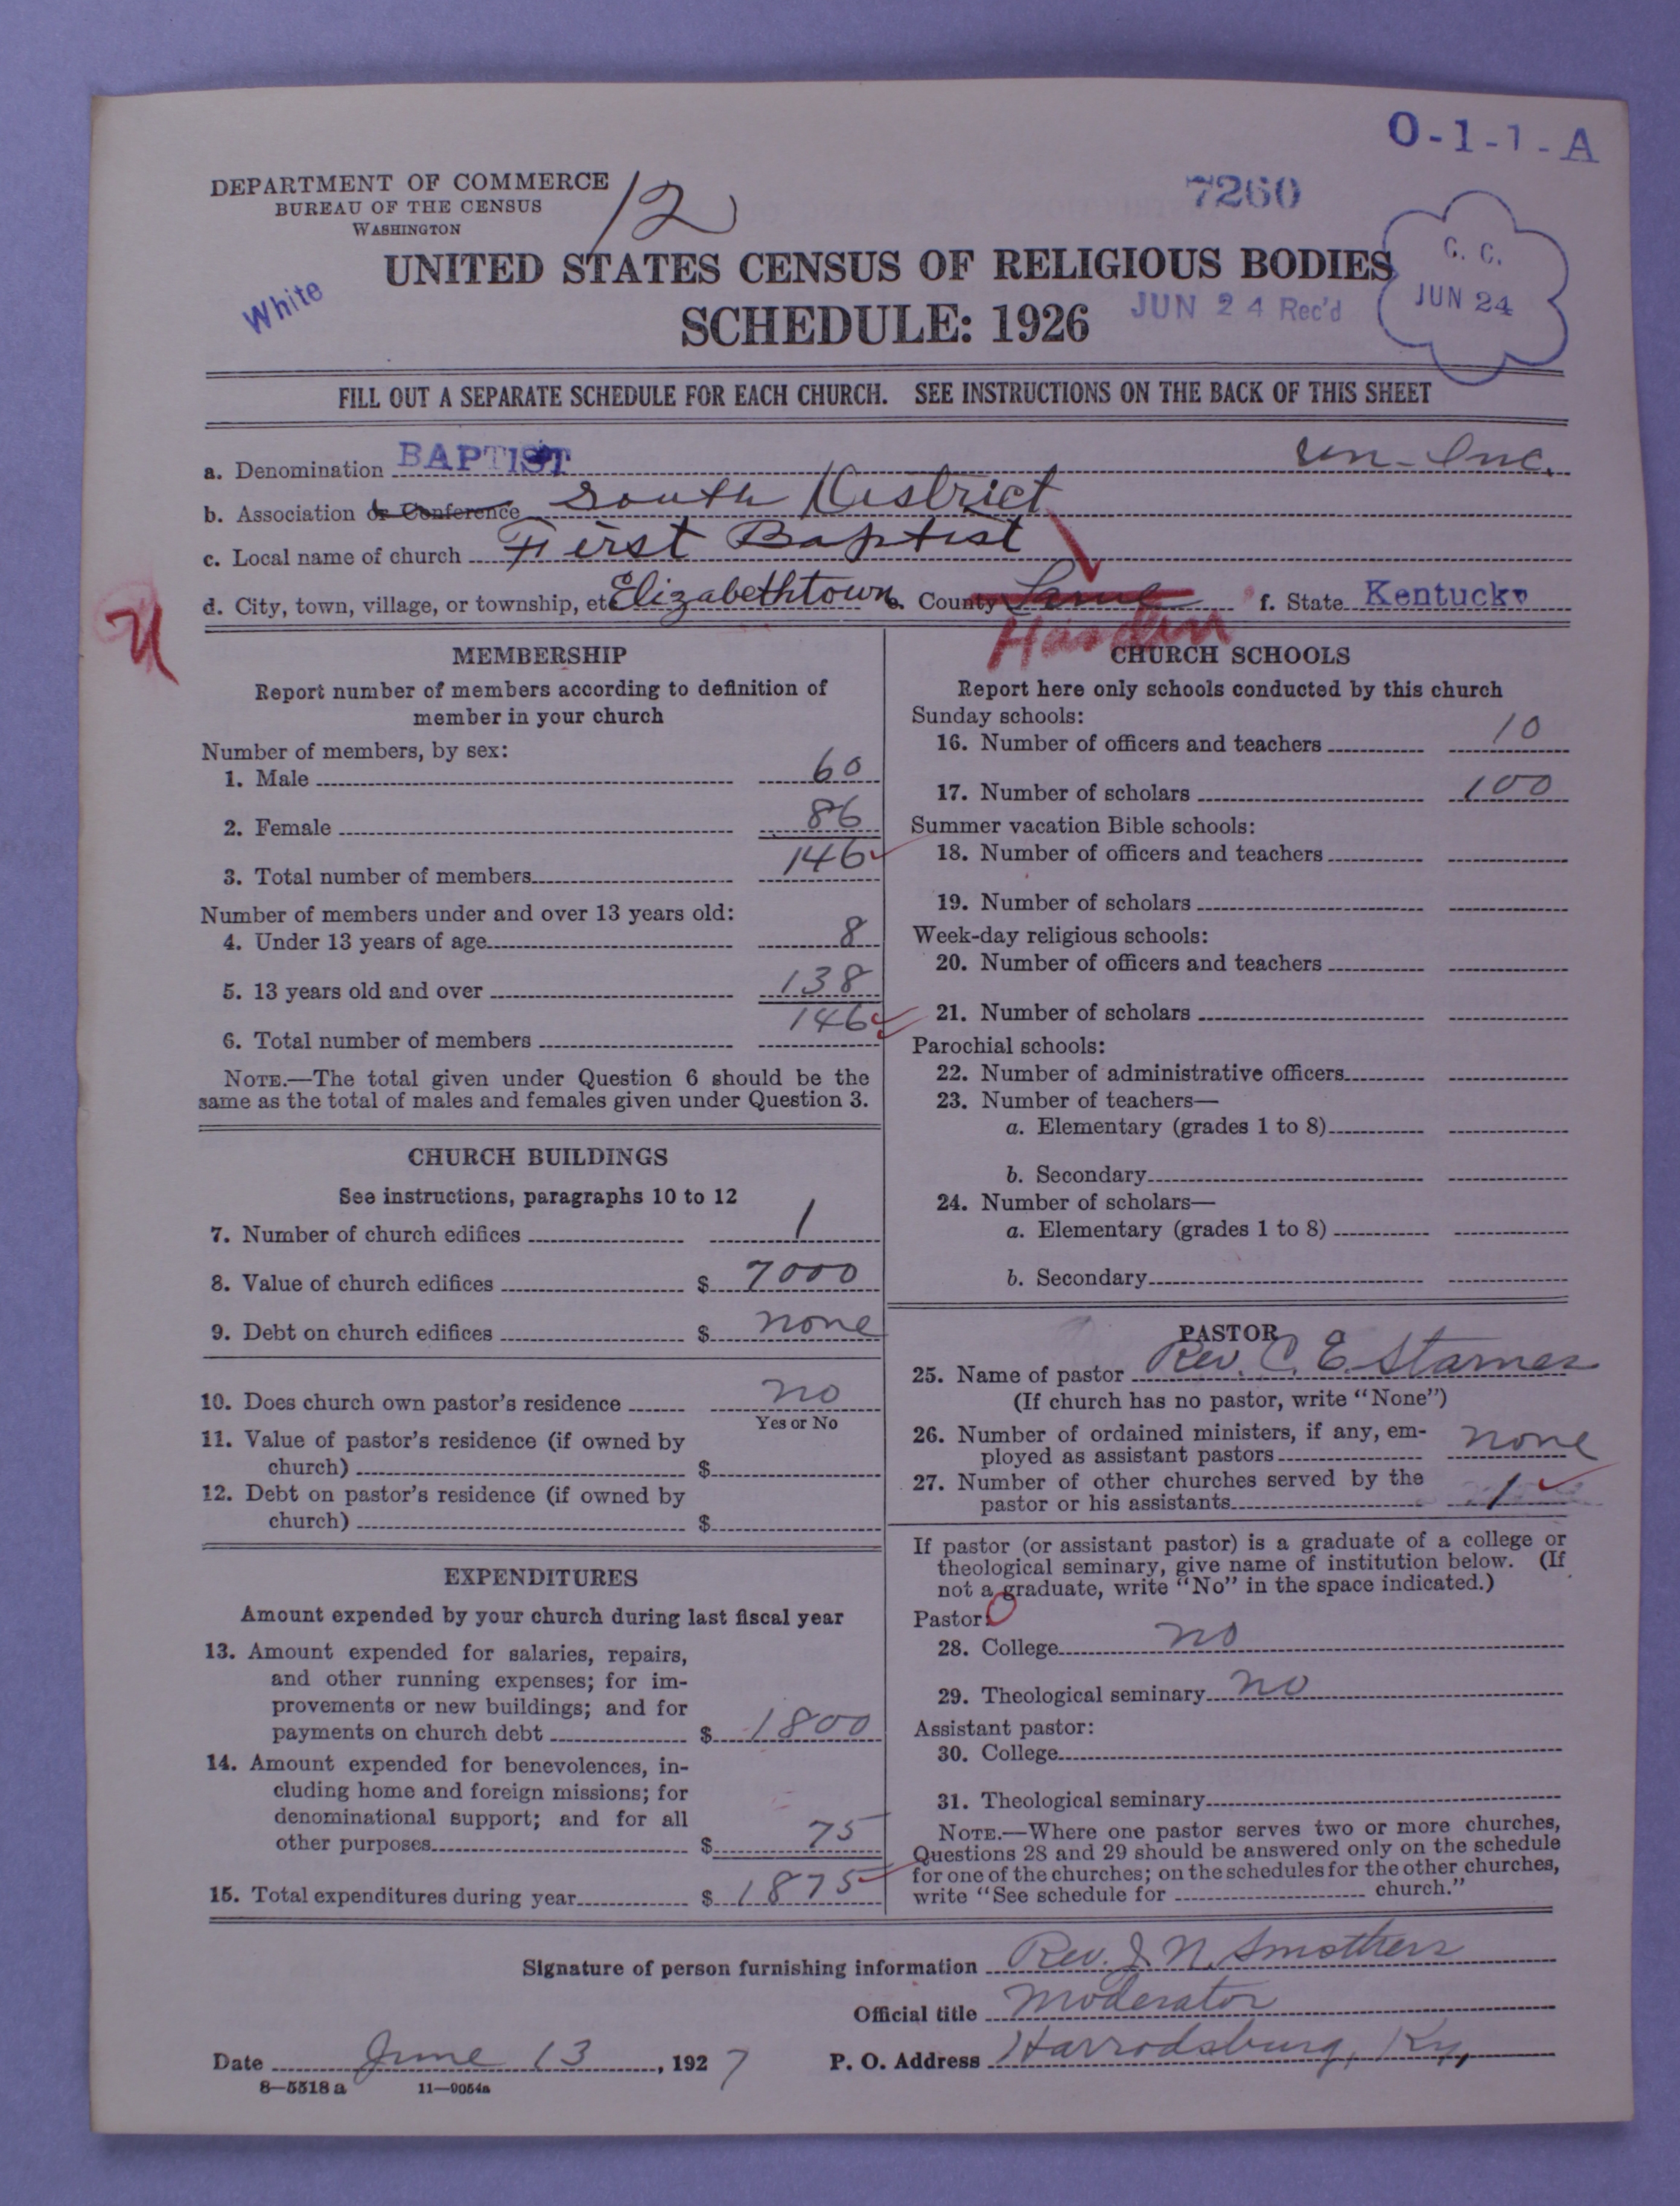 O-1-1-A
DEPARTMENT OF COMMERCE
BUREAU OF THE CENSUS
WASHINGTON
12
7260
UNITED STATES CENSUS OF RELIGIOUS BODIES
SCHEDULE: 1926
White
JUN 24 Rec'd
C. C.
JUN 24
FILL OUT A SEPARATE SCHEDULE FOR EACH CHURCH. SEE INSTRUCTIONS ON THE BACK OF THIS SHEET
a. Denomination BAPTIST un-Inc.
b. Association or Conference South District
c. Local name of church First Baptist
d. City, town, village, or township, etc Elizabethtown e. County Larue f. State Kentucky
Hardin
MEMBERSHIP
Report number of members according to definition of
member in your church
Number of members, by sex:
1. Male 60
2. Female 86
3. Total number of members 146
Number of members under and over 13 years old:
4. Under 13 years of age 8
5. 13 years old and over 138
6. Total number of members 146
NOTE.—The total given under Question 6 should be the
same as the total of males and females given under Question 3.
CHURCH BUILDINGS
See instructions, paragraphs 10 to 12
7. Number of church edifices 1
8. Value of church edifices $ 7000
9. Debt on church edifices $ none
10. Does church own pastor's residence no
Yes or No
11. Value of pastor's residence (if owned by
church) $
12. Debt on pastor's residence (if owned by
church) $
EXPENDITURES
Amount expended by your church during last fiscal year
13. Amount expended for salaries, repairs,
and other running expenses; for im-
provements or new buildings; and for
payments on church debt $ 1800
14. Amount expended for benevolences, in-
cluding home and foreign missions; for
denominational support; and for all
other purposes $ 75
15. Total expenditures during year $ 1875
CHURCH SCHOOLS
Report here only schools conducted by this church
Sunday schools:
16. Number of officers and teachers 10
17. Number of scholars 100
Summer vacation Bible schools:
18. Number of officers and teachers
19. Number of scholars
Week-day religious schools:
20. Number of officers and teachers
21. Number of scholars
Parochial schools:
22. Number of administrative officers
23. Number of teachers—
a. Elementary (grades 1 to 8)
b. Secondary
24. Number of scholars—
a. Elementary (grades 1 to 8)
b. Secondary
PASTOR
25. Name of pastor Rev. C. E. Starnes
(If church has no pastor, write "None")
26. Number of ordained ministers, if any, em-
ployed as assistant pastors none
27. Number of other churches served by the
pastor or his assistants 1
If pastor (or assistant pastor) is a graduate of a college or
theological seminary, give name of institution below. (If
not a graduate, write "No" in the space indicated.)
Pastor:
28. College no
29. Theological seminary no
Assistant pastor:
30. College
31. Theological seminary
NOTE.—Where one pastor serves two or more churches,
Questions 28 and 29 should be answered only on the schedule
for one of the churches; on the schedules for the other churches,
write "See schedule for church."
Signature of person furnishing information Rev. J. N. Smothers
Official title Moderator
Date June 13, 1927 P. O. Address Harrodsburg, Ky,
8—5518a 11—9054a